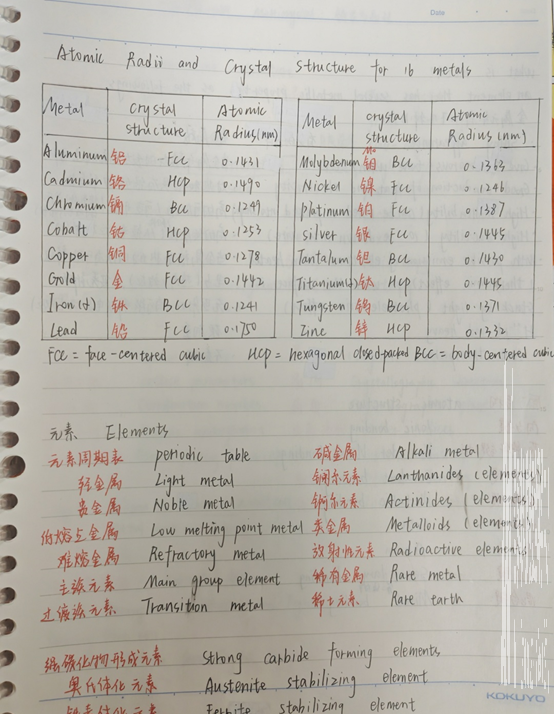 Date
Atomic Radii and Crystal structure for 16 metals
Metal crystal structure Atomic Radius(nm) Metal crystal structure Atomic Radius(nm)
Aluminum 铝 FCC 0.1431 Molybdenum 钼 BCC 0.1363
Cadmium 铬 HCP 0.1490 Nickel 镍 FCC 0.1246
Chromium 镉 BCC 0.1249 platinum 铂 FCC 0.1387
Cobalt 钴 HCP 0.1253 silver 银 FCC 0.1445
Copper 铜 FCC 0.1278 Tantalum 钽 BCC 0.1430
Gold 金 FCC 0.1442 Titanium(α) 钛 HCP 0.1445
Iron(α) 铁 BCC 0.1241 Tungsten 钨 BCC 0.1371
Lead 铅 FCC 0.1750 Zinc 锌 HCP 0.1332
FCC = face-centered cubic HCP = hexagonal closed-packed BCC = body-centered cubic
元素 Elements
元素周期表 periodic table 碱金属 Alkali metal
轻金属 Light metal 镧系元素 Lanthanides (elements)
贵金属 Noble metal 锕系元素 Actinides (elements)
低熔点金属 Low melting point metal 类金属 Metalloids (elements)
难熔金属 Refractory metal 放射性元素 Radioactive elements
主族元素 Main group element 稀有金属 Rare metal
过渡族元素 Transition metal 稀土元素 Rare earth
强碳化物形成元素 Strong carbide forming elements
奥氏体化元素 Austenite stabilizing element
铁素体化元素 Ferrite stabilizing element
KOKUYO